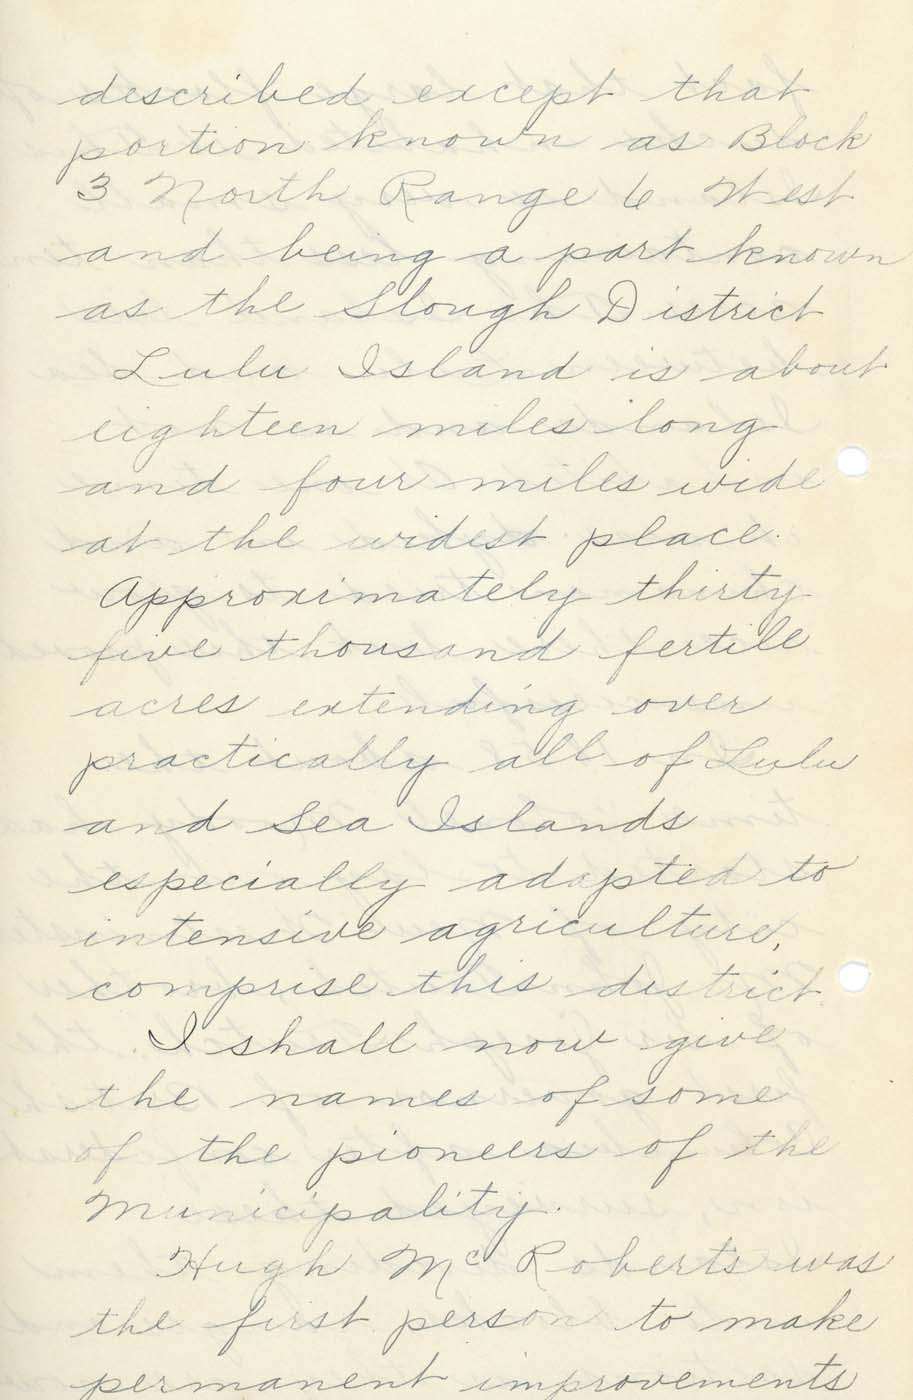 described except that
portion known as Block
3 North Range 6 West
and being a part known
as the Slough District
Lulu Island is about
eighteen miles long
and four miles wide
at the widest place.
Approximately thirty
five thousand fertile
acres extending over
practically all of Lulu
and Sea Islands
especially adapted to
intensive agriculture,
comprise this district.
I shall now give
the names of some
of the pioneers of the
Municipality.
Hugh McRoberts was
the first person to make
permanent improvements